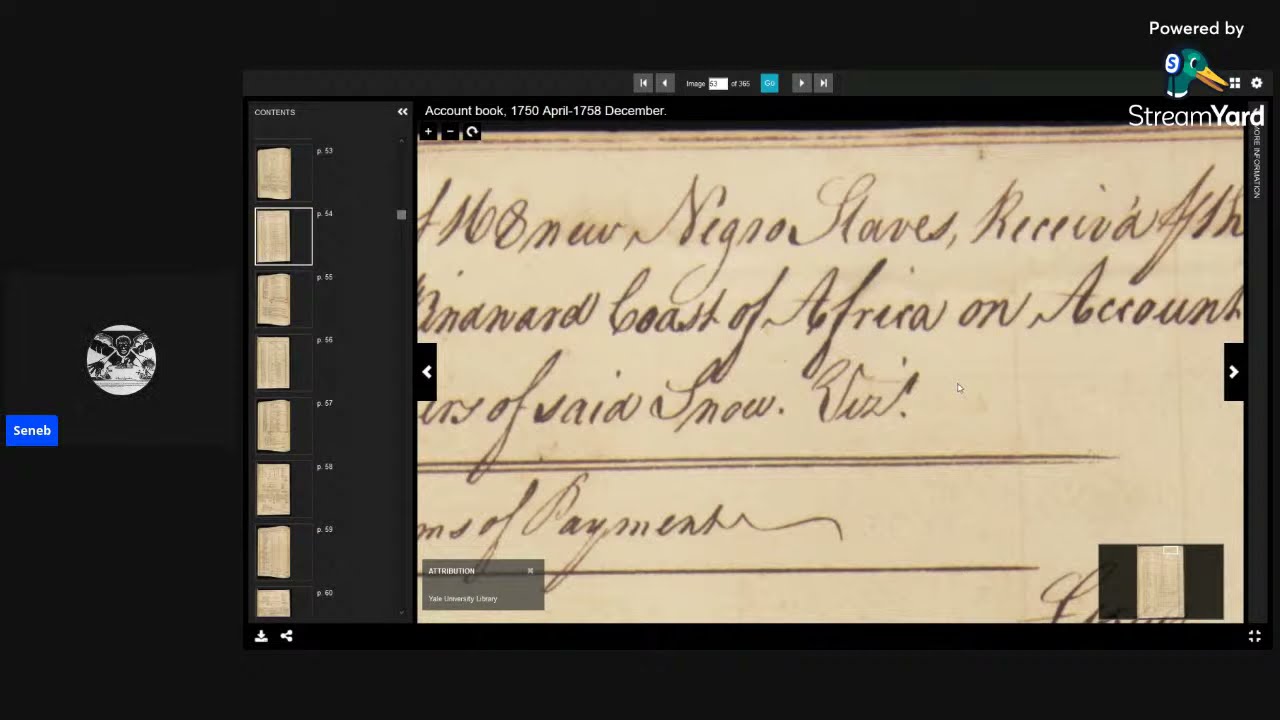 Powered by
StreamYard
Image 53 of 365 Go
CONTENTS
Account book, 1750 April-1758 December.
MORE INFORMATION
p. 53
p. 54
p. 55
p. 56
p. 57
p. 58
p. 59
p. 60
f 168 new Negro Slaves, Receiv'd
Coast of Africa on Account
ers of said Snow. Viz.
ms of Payment
ATTRIBUTION
Yale University Library
Seneb